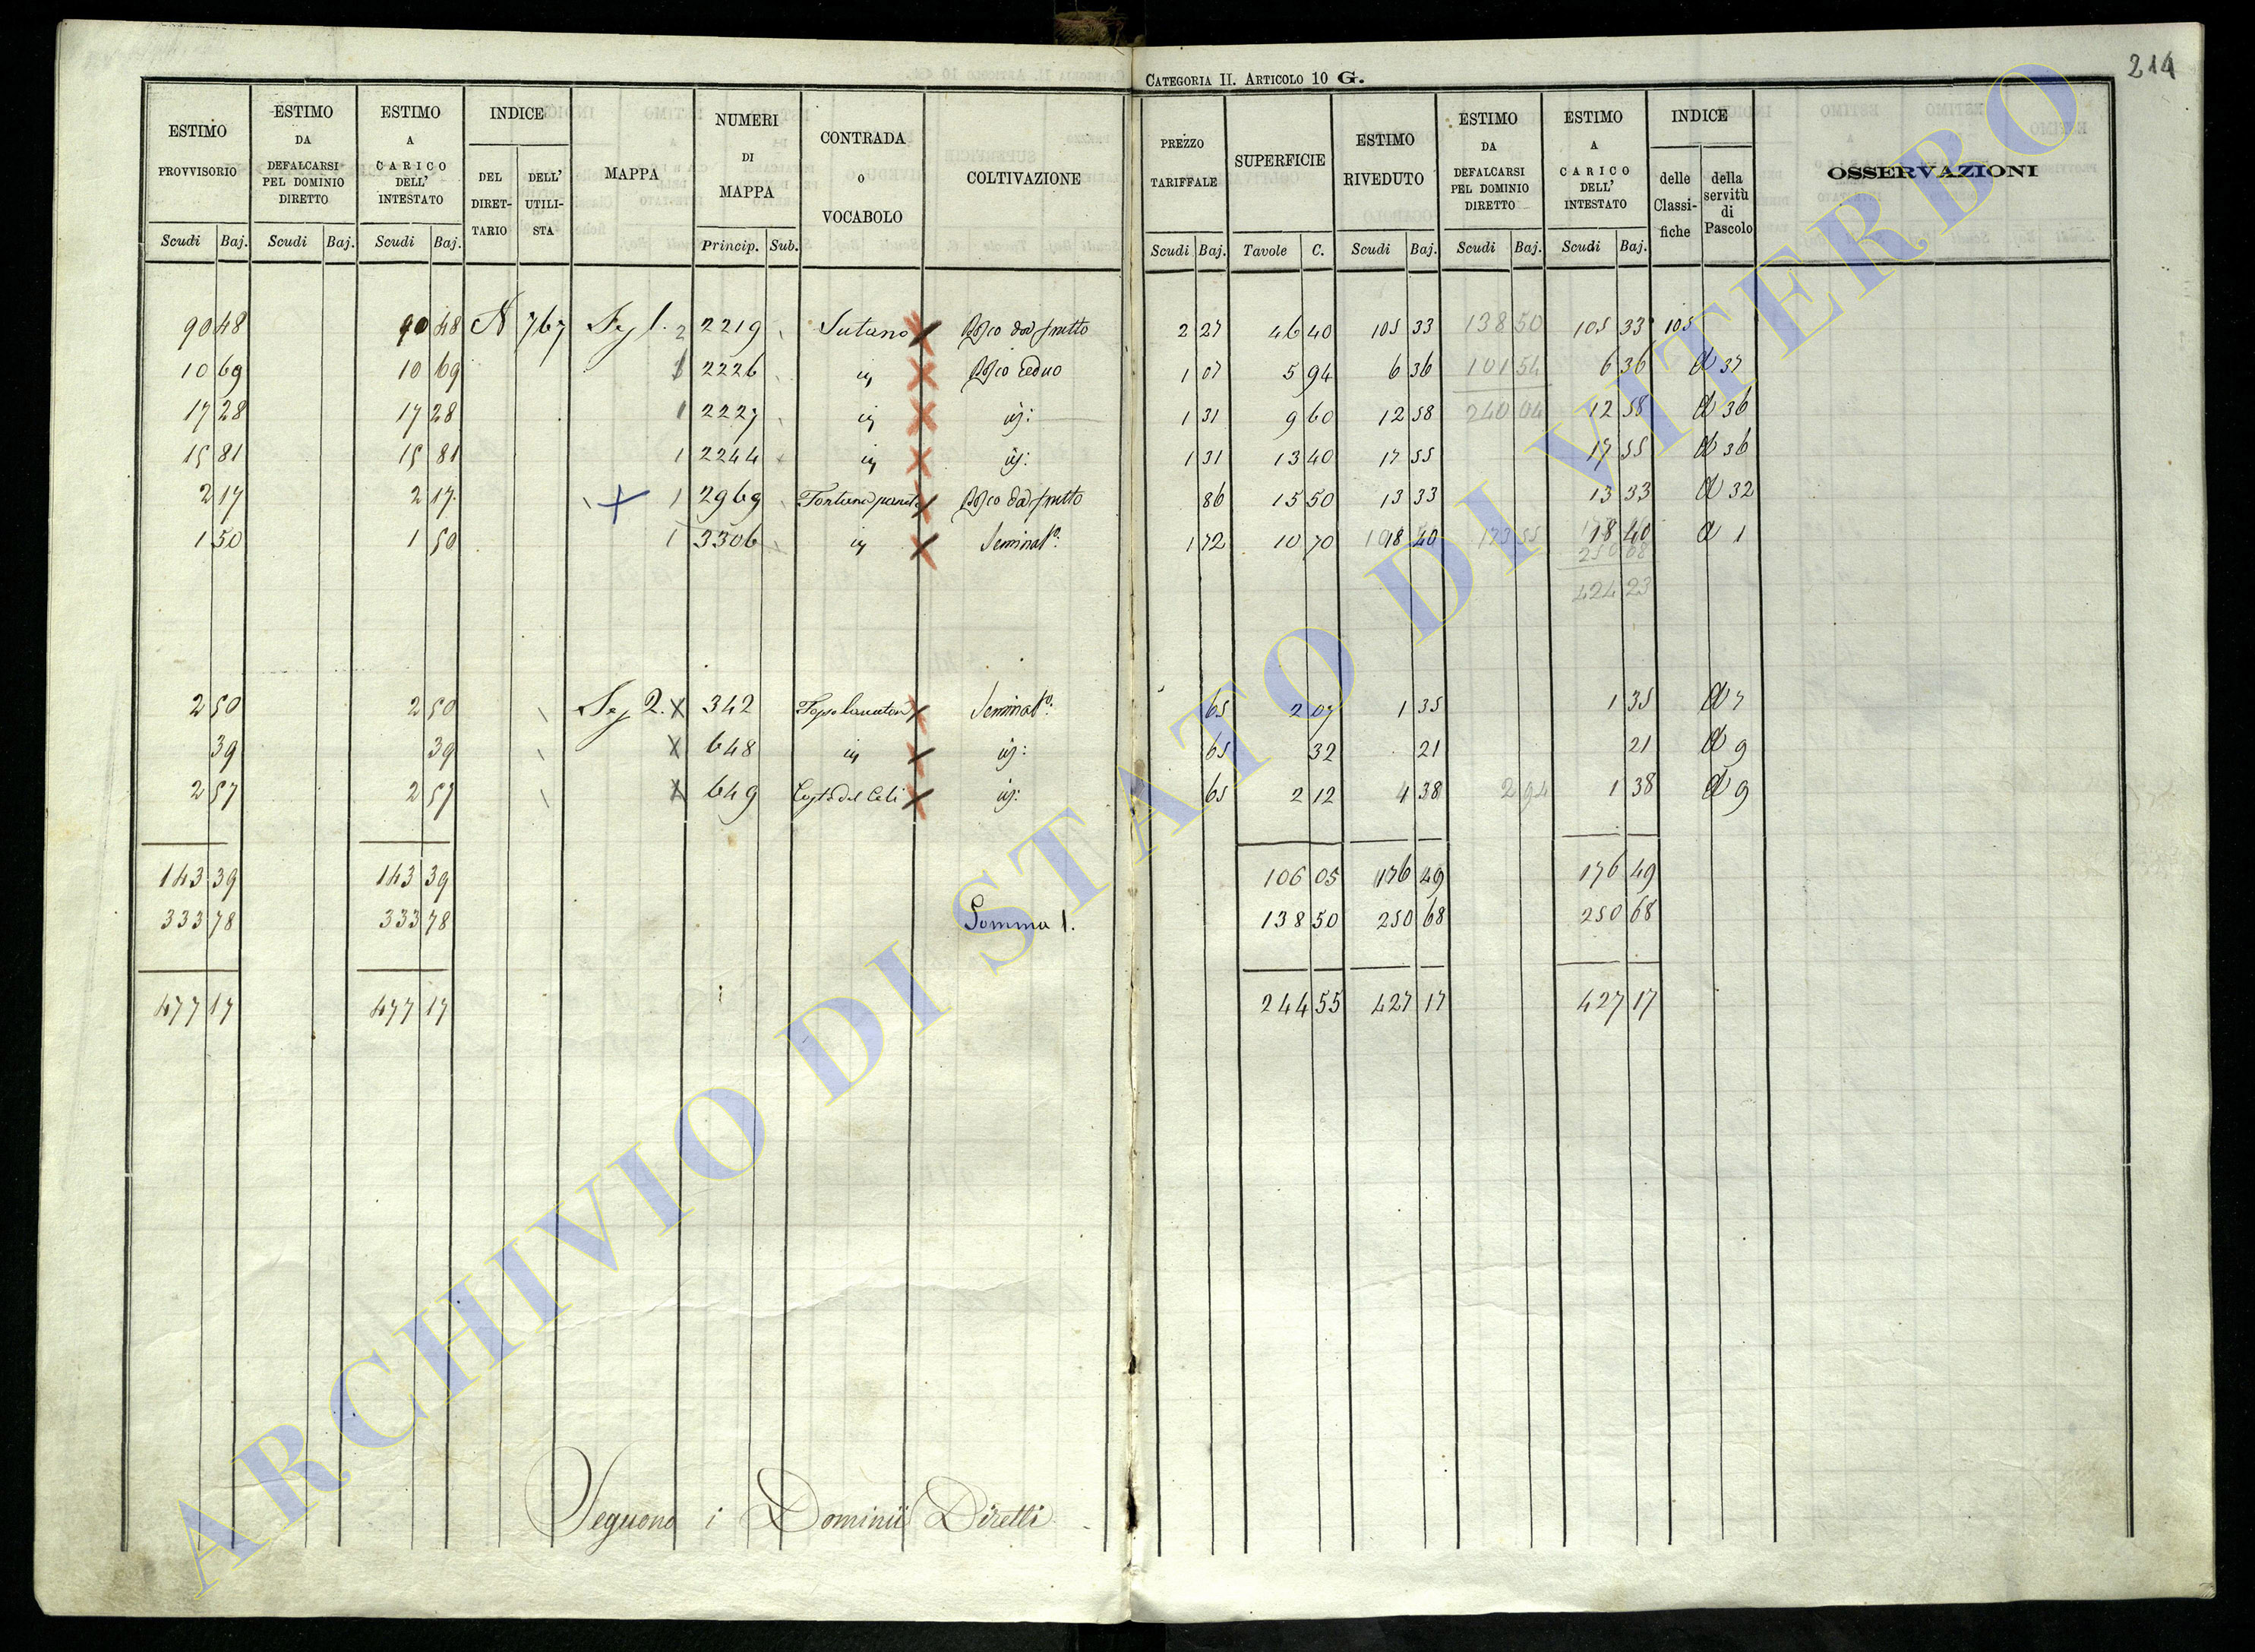 CATEGORIA II. ARTICOLO 10 G.
214
ESTIMO PROVVISORIO Scudi Baj.
ESTIMO DA DEFALCARSI PEL DOMINIO DIRETTO Scudi Baj.
ESTIMO A CARICO DELL' INTESTATO Scudi Baj.
INDICE DEL DIRET-TARIO DELL' UTILI-STA
MAPPA
NUMERI DI MAPPA Princip. Sub.
CONTRADA O VOCABOLO
COLTIVAZIONE
PREZZO TARIFFALE Scudi Baj.
SUPERFICIE Tavole C.
ESTIMO RIVEDUTO Scudi Baj.
ESTIMO DA DEFALCARSI PEL DOMINIO DIRETTO Scudi Baj.
ESTIMO A CARICO DELL' INTESTATO Scudi Baj.
INDICE delle Classi-fiche della servitù di Pascolo
OSSERVAZIONI
90 48 90 48 N 767 Sez 1. 2 2219 Sutano Bosco da frutto 2 27 46 40 105 33 138 50 105 33 105
10 69 10 69 1 2226 Bosco Ceduo 1 07 5 94 6 36 101 54 6 36 37
17 28 17 28 1 2227 1 31 9 60 12 58 240 04 12 58 36
15 81 15 81 1 2244 1 31 13 40 17 55 17 55 36
2 17 2 17 1 2969 Bosco da frutto 86 15 50 13 33 13 33 32
1 50 1 50 1 3306 Seminat.º 1 72 10 70 18 40 173 55 18 40 1
250 68
424 23
2 50 2 50 Sez 2. X 342 Seminat.º 65 2 07 1 35 1 35 7
39 39 X 648 65 32 21 21 9
2 57 2 57 X 649 65 2 12 1 38 2 94 1 38 9
143 39 143 39 106 05 176 49 176 49
333 78 333 78 Somma 1. 138 50 250 68 250 68
477 17 477 17 244 55 427 17 427 17
Seguono i Dominii Diretti
ARCHIVIO DI STATO DI VITERBO